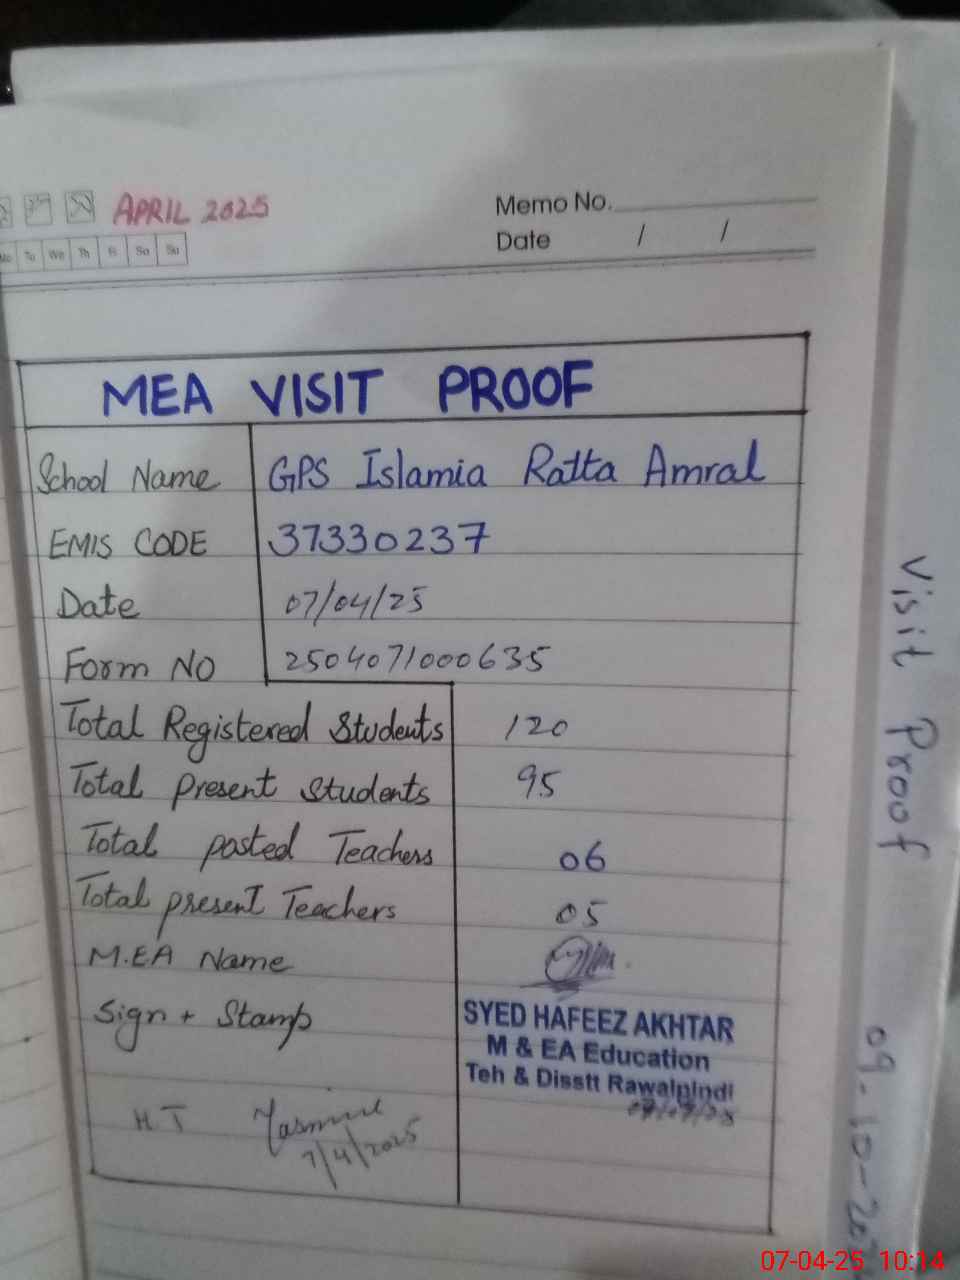 APRIL 2025
Memo No.
Mo Tu We Th Fr Sa Su
Date / /
MEA VISIT PROOF
School Name GPS Islamia Ratta Amral
EMIS CODE 37330237
Date 07/04/25
Form NO 2504071000635
Total Registered Students 120
Total present Students 95
Total posted Teachers 06
Total present Teachers 05
M.EA Name
Sign + Stamp
SYED HAFEEZ AKHTAR
M & EA Education
Teh & Disstt Rawalpindi
H T
7/4/2025
Visit Proof
09-10-20
07-04-25 10:14